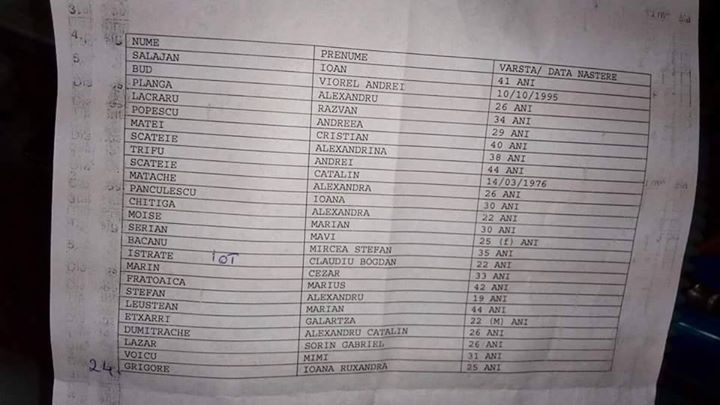 3.
4.
5.
NUME PRENUME VARSTA/ DATA NASTERE
SALAJAN IOAN 41 ANI
BUD VIOREL ANDREI 10/10/1995
PLANGA ALEXANDRU 26 ANI
LACRARU RAZVAN 34 ANI
POPESCU ANDREEA 29 ANI
MATEI CRISTIAN 40 ANI
SCATEIE ALEXANDRINA 38 ANI
TRIFU ANDREI 44 ANI
SCATEIE CATALIN 14/03/1976
MATACHE ALEXANDRA 26 ANI
PANCULESCU IOANA 30 ANI
CHITIGA ALEXANDRA 22 ANI
MOISE MARIAN 30 ANI
SERIAN MAVI 25 (f) ANI
BACANU MIRCEA STEFAN 35 ANI
ISTRATE IOT CLAUDIU BOGDAN 22 ANI
MARIN CEZAR 33 ANI
FRATOAICA MARIUS 42 ANI
STEFAN ALEXANDRU 19 ANI
LEUSTEAN MARIAN 44 ANI
ETXARRI GALARTZA 22 (M) ANI
DUMITRACHE ALEXANDRU CATALIN 26 ANI
LAZAR SORIN GABRIEL 26 ANI
VOICU MIMI 31 ANI
24. GRIGORE IOANA RUXANDRA 25 ANI